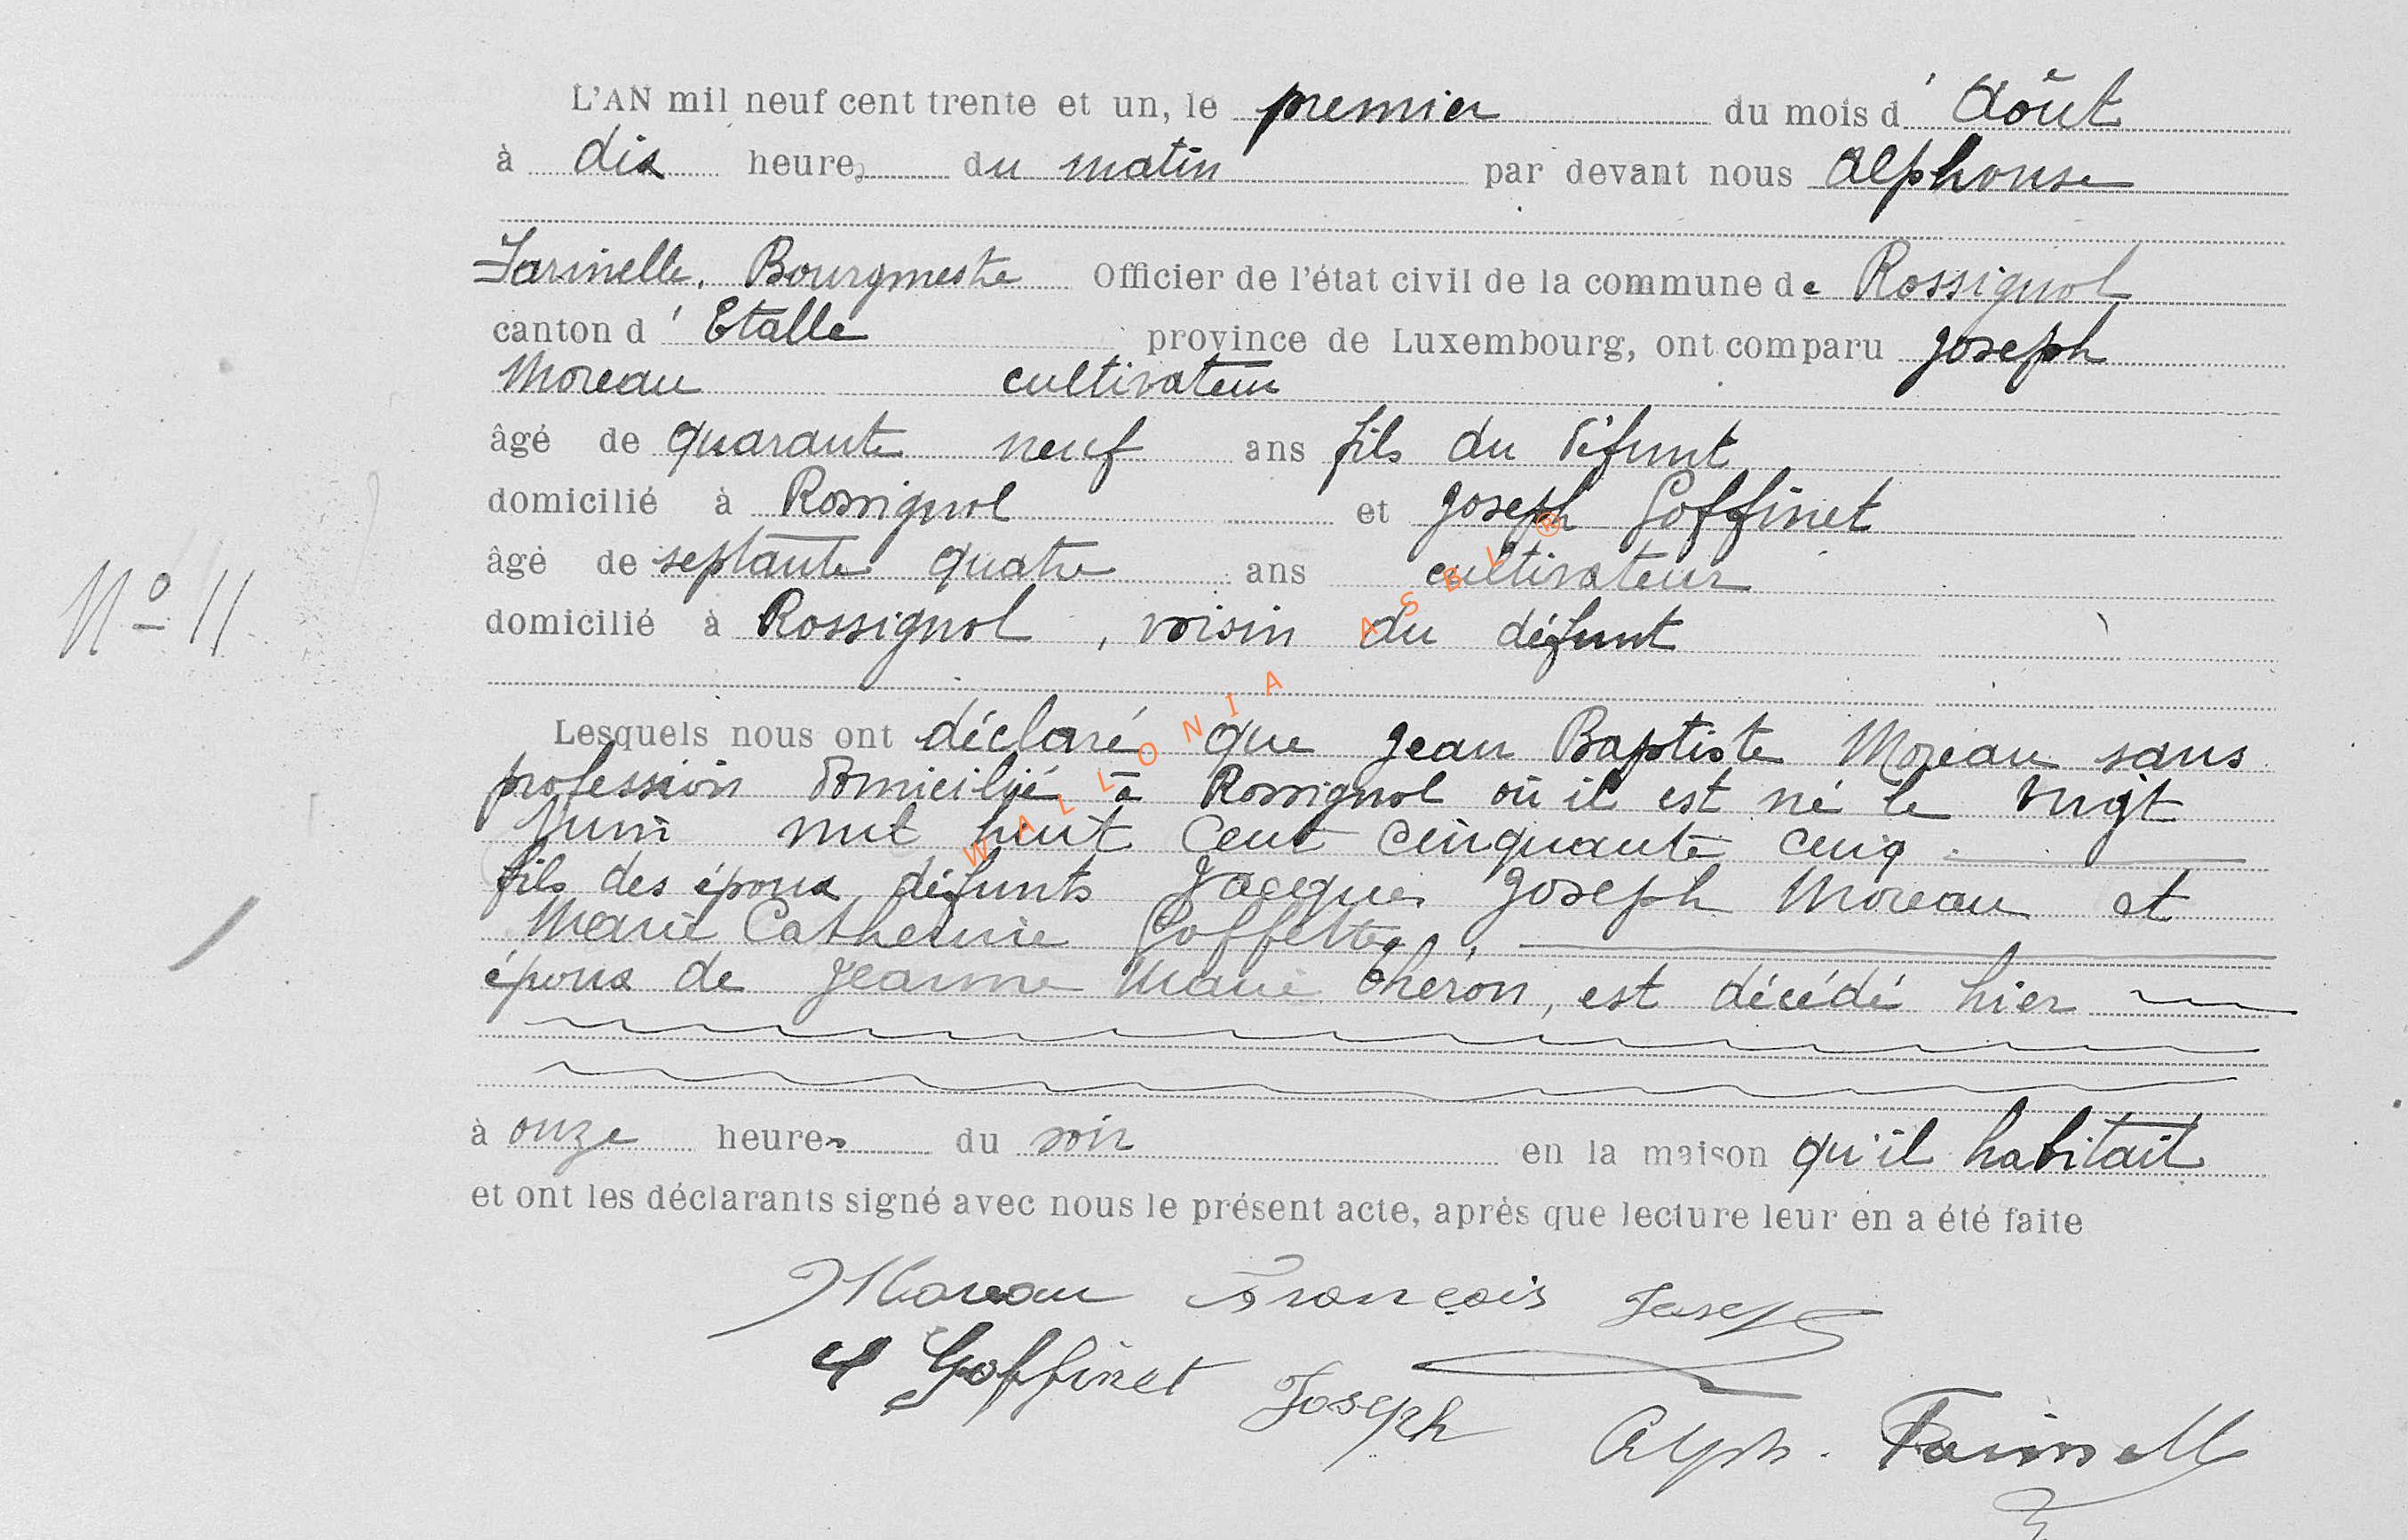 L'AN mil neuf cent trente et un, le premier du mois d' Août
à dix heures du matin par devant nous Alphonse
Farinelle, Bourgmestre Officier de l'état civil de la commune de Rossignol
canton d' Etalle province de Luxembourg, ont comparu Joseph
Moreau cultivateur
âgé de quarante neuf ans fils du défunt
domicilié à Rossignol et Joseph Goffinet
âgé de septante quatre ans cultivateur
domicilié à Rossignol, voisin du défunt
N° 11
Lesquels nous ont déclaré que Jean Baptiste Moreau sans
profession domicilié à Rossignol où il est né le vingt
Juin mil huit cent cinquante cinq
fils des époux défunts Jacques Joseph Moreau et
Marie Catherine Goffette,
époux de Jeanne Marie Théron, est décédé hier
à onze heures du soir en la maison qu'il habitait
et ont les déclarants signé avec nous le présent acte, après que lecture leur en a été faite
Moreau François Joseph
Goffinet Joseph
Alph. Farinelle
WALLONIA ASBL ®